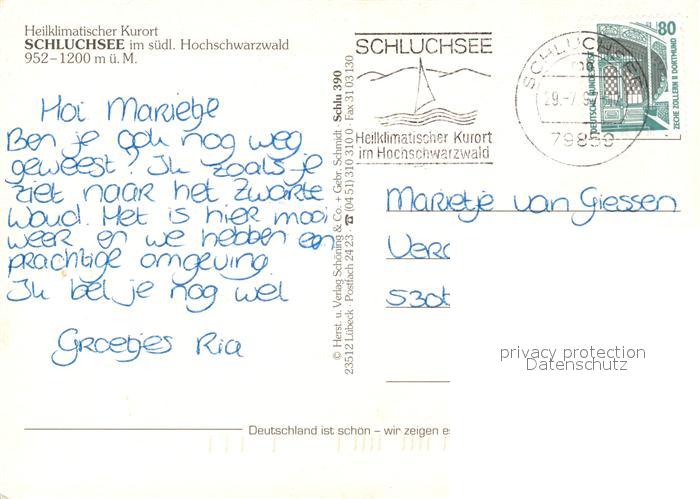 Heilklimatischer Kurort
SCHLUCHSEE im südl. Hochschwarzwald
952–1200 m ü. M.
Hoi Marietje
Ben je ook nog weg
geweest? Ik zoals je
ziet naar het Zwarte
Woud. Het is hier mooi
weer en we hebben een
prachtige omgeving
Ik bel je nog wel
Groetjes Ria
© Herst. u. Verlag Schöning & Co. + Gebr. Schmidt · Schlu 390
23512 Lübeck · Postfach 24 23 · ☎ (04 51) 310 310 · Fax 31 03 130
SCHLUCHSEE
Heilklimatischer Kurort
im Hochschwarzwald
SCHLUCHSEE
29.-7.9
79859
80
DEUTSCHE BUNDESPOST
ZECHE ZOLLERN II DORTMUND
Marietje van Giessen
Verc
530
privacy protection
Datenschutz
Deutschland ist schön – wir zeigen es